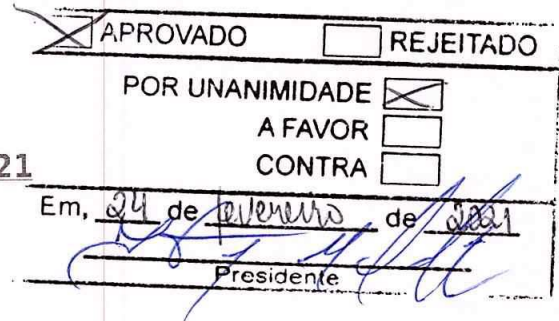 APROVADO REJEITADO
POR UNANIMIDADE
A FAVOR
CONTRA
21
Em, 24 de fevereiro de 2021
Presidente